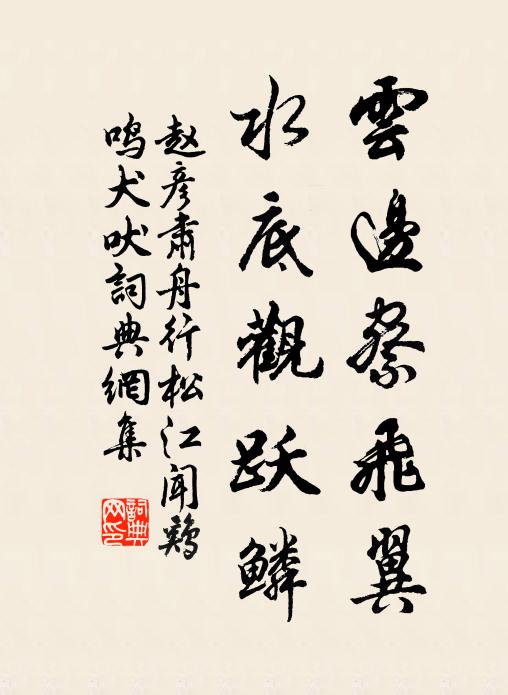 雲邊察飛翼
水底觀跃鱗
赵彦肅舟行松江闻鷄
鸣犬吠詞典網集
詞典
网印